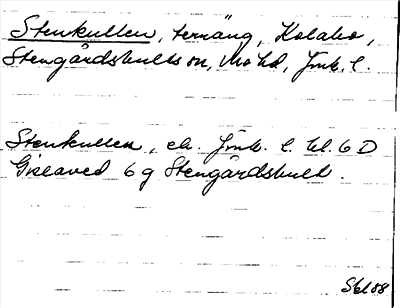 Stenkullen, terräng, Kolabo,
Stengårdshults sn, Mo hd, Jmk. l.
Stenkullen, ek. Jmk. l. bl. 6 D
Gislaved 6 g Stengårdshult.
Sbl 58